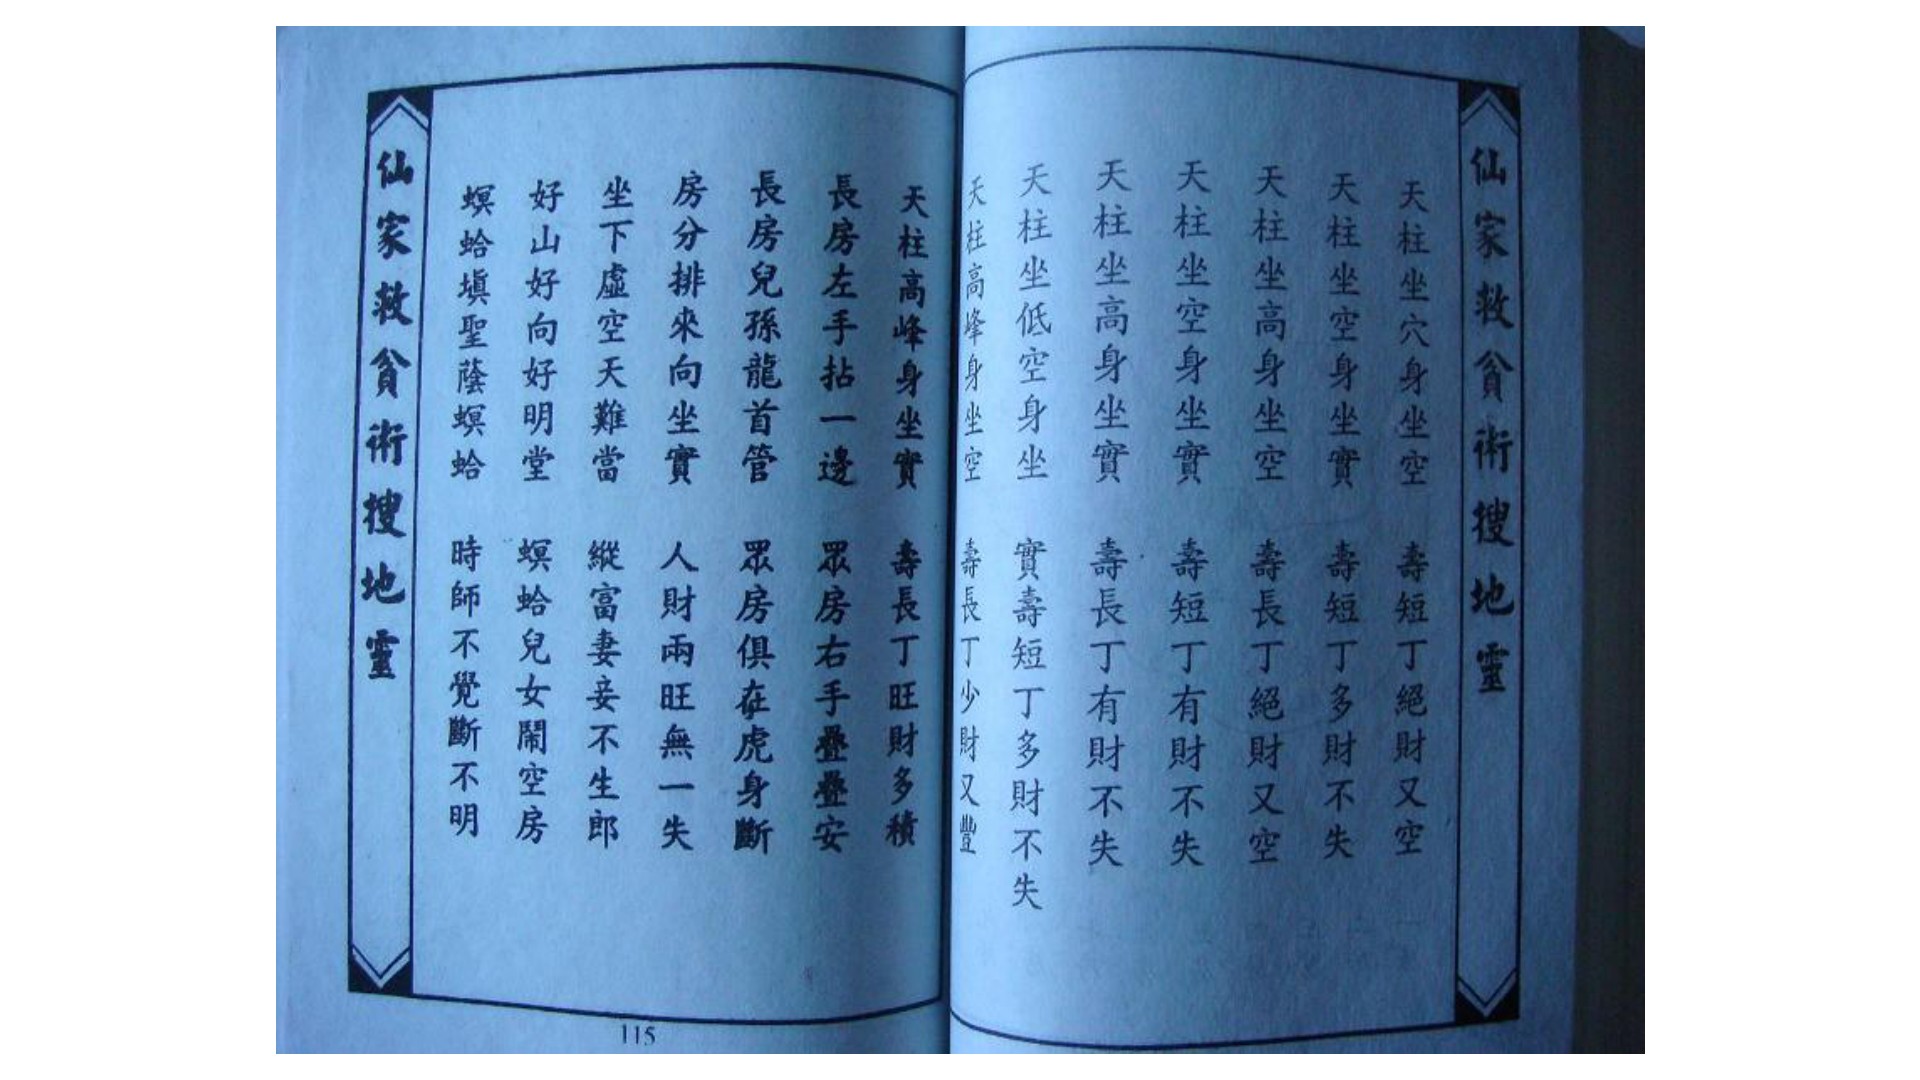 仙家救貧術搜地靈
天柱坐穴身坐空 壽短丁絕財又空
天柱坐空身坐實 壽短丁多財不失
天柱坐高身坐空 壽長丁絕財又空
天柱坐空身坐實 壽短丁有財不失
天柱坐高身坐實 壽長丁有財不失
天柱坐低空身坐 實壽短丁多財不失
天柱高峰身坐空 壽長丁少財又豐
天柱高峰身坐實 壽長丁旺財多積
長房左手拈一邊 眾房右手疊疊安
長房兒孫龍首管 眾房俱在虎身斷
房分排來向坐實 人財兩旺無一失
坐下虛空天難當 縱富妻妾不生郎
好山好向好明堂 螟蛤兒女鬧空房
螟蛤塡聖蔭螟蛤 時師不覺斷不明
仙家救貧術搜地靈
115